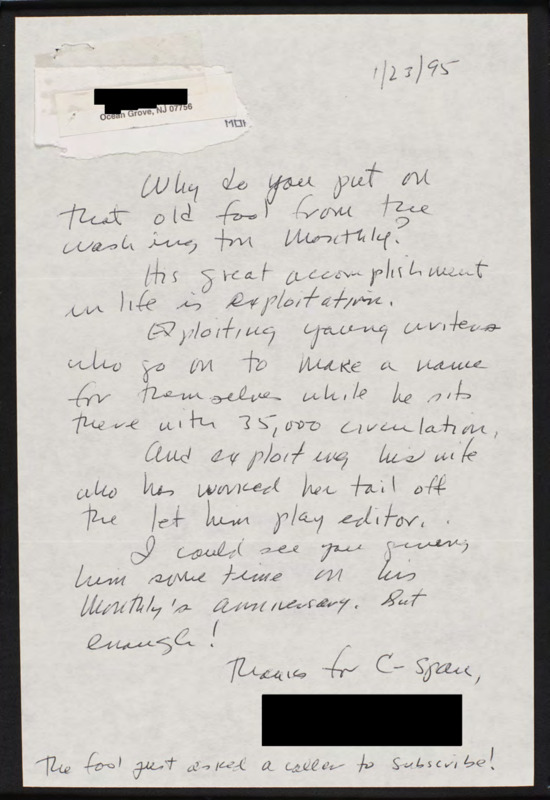 1/23/95
Ocean Grove, NJ 07756
MOH
Why do you put on
that old fool from the
Washington Monthly?
His great accomplishment
in life is exploitation.
Exploiting young writers
who go on to make a name
for themselves while he sits
there with 35,000 circulation.
And exploiting his wife
who has worked her tail off
the let him play editor.
I could see you giving
him some time on his
Monthly's anniversary. But
enough!
Thanks for C-Span,
The fool just asked a caller to subscribe!